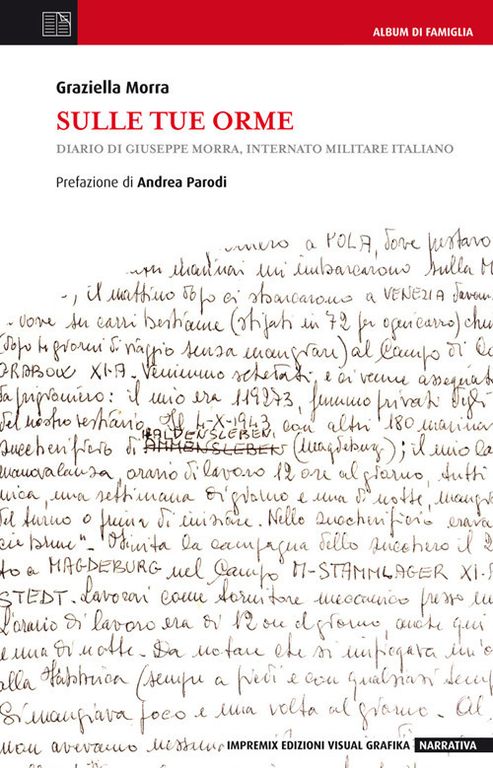 ALBUM DI FAMIGLIA
Graziella Morra
SULLE TUE ORME
DIARIO DI GIUSEPPE MORRA, INTERNATO MILITARE ITALIANO
Prefazione di Andrea Parodi
a POLA, dove
marinai mi imbarcarono sulla M
, il mattino dopo ci sbarcarono a VENEZIA
dove su carri bestiame (stipati in 72 per ogni carro)
(dopo giorni di viaggio senza mangiare) al Campo di
GRABOW XI-A. Venimmo schedati e ci venne assegnat
da prigioniero: il mio era 119273, fummo privati degli
del nostro vestiario. Il 4-X-1943 con altri 180 marinai
HALDENSLEBEN
zuccherificio di AMMENSLEBEN (Magdeburg); il mio la
manovalanza, orario di lavoro 12 ore al giorno, tutti
una settimana di giorno e una di notte,
del turno o prima di iniziare. Nello zuccherificio
Finita la campagna dello zucchero il 2
to a MAGDEBURG nel Campo M-STAMMLAGER XI-A
STEDT. Lavorai come tornitore meccanico presso
L'orario di lavoro era di 12 ore al giorno, anche qui
e una di notte. Da notare che si impiegava
alla Fabbrica (sempre a piedi e con qualsiasi temp
Si mangiava poco e una volta al giorno. Al
non avevamo nessun
IMPREMIX EDIZIONI VISUAL GRAFIKA NARRATIVA